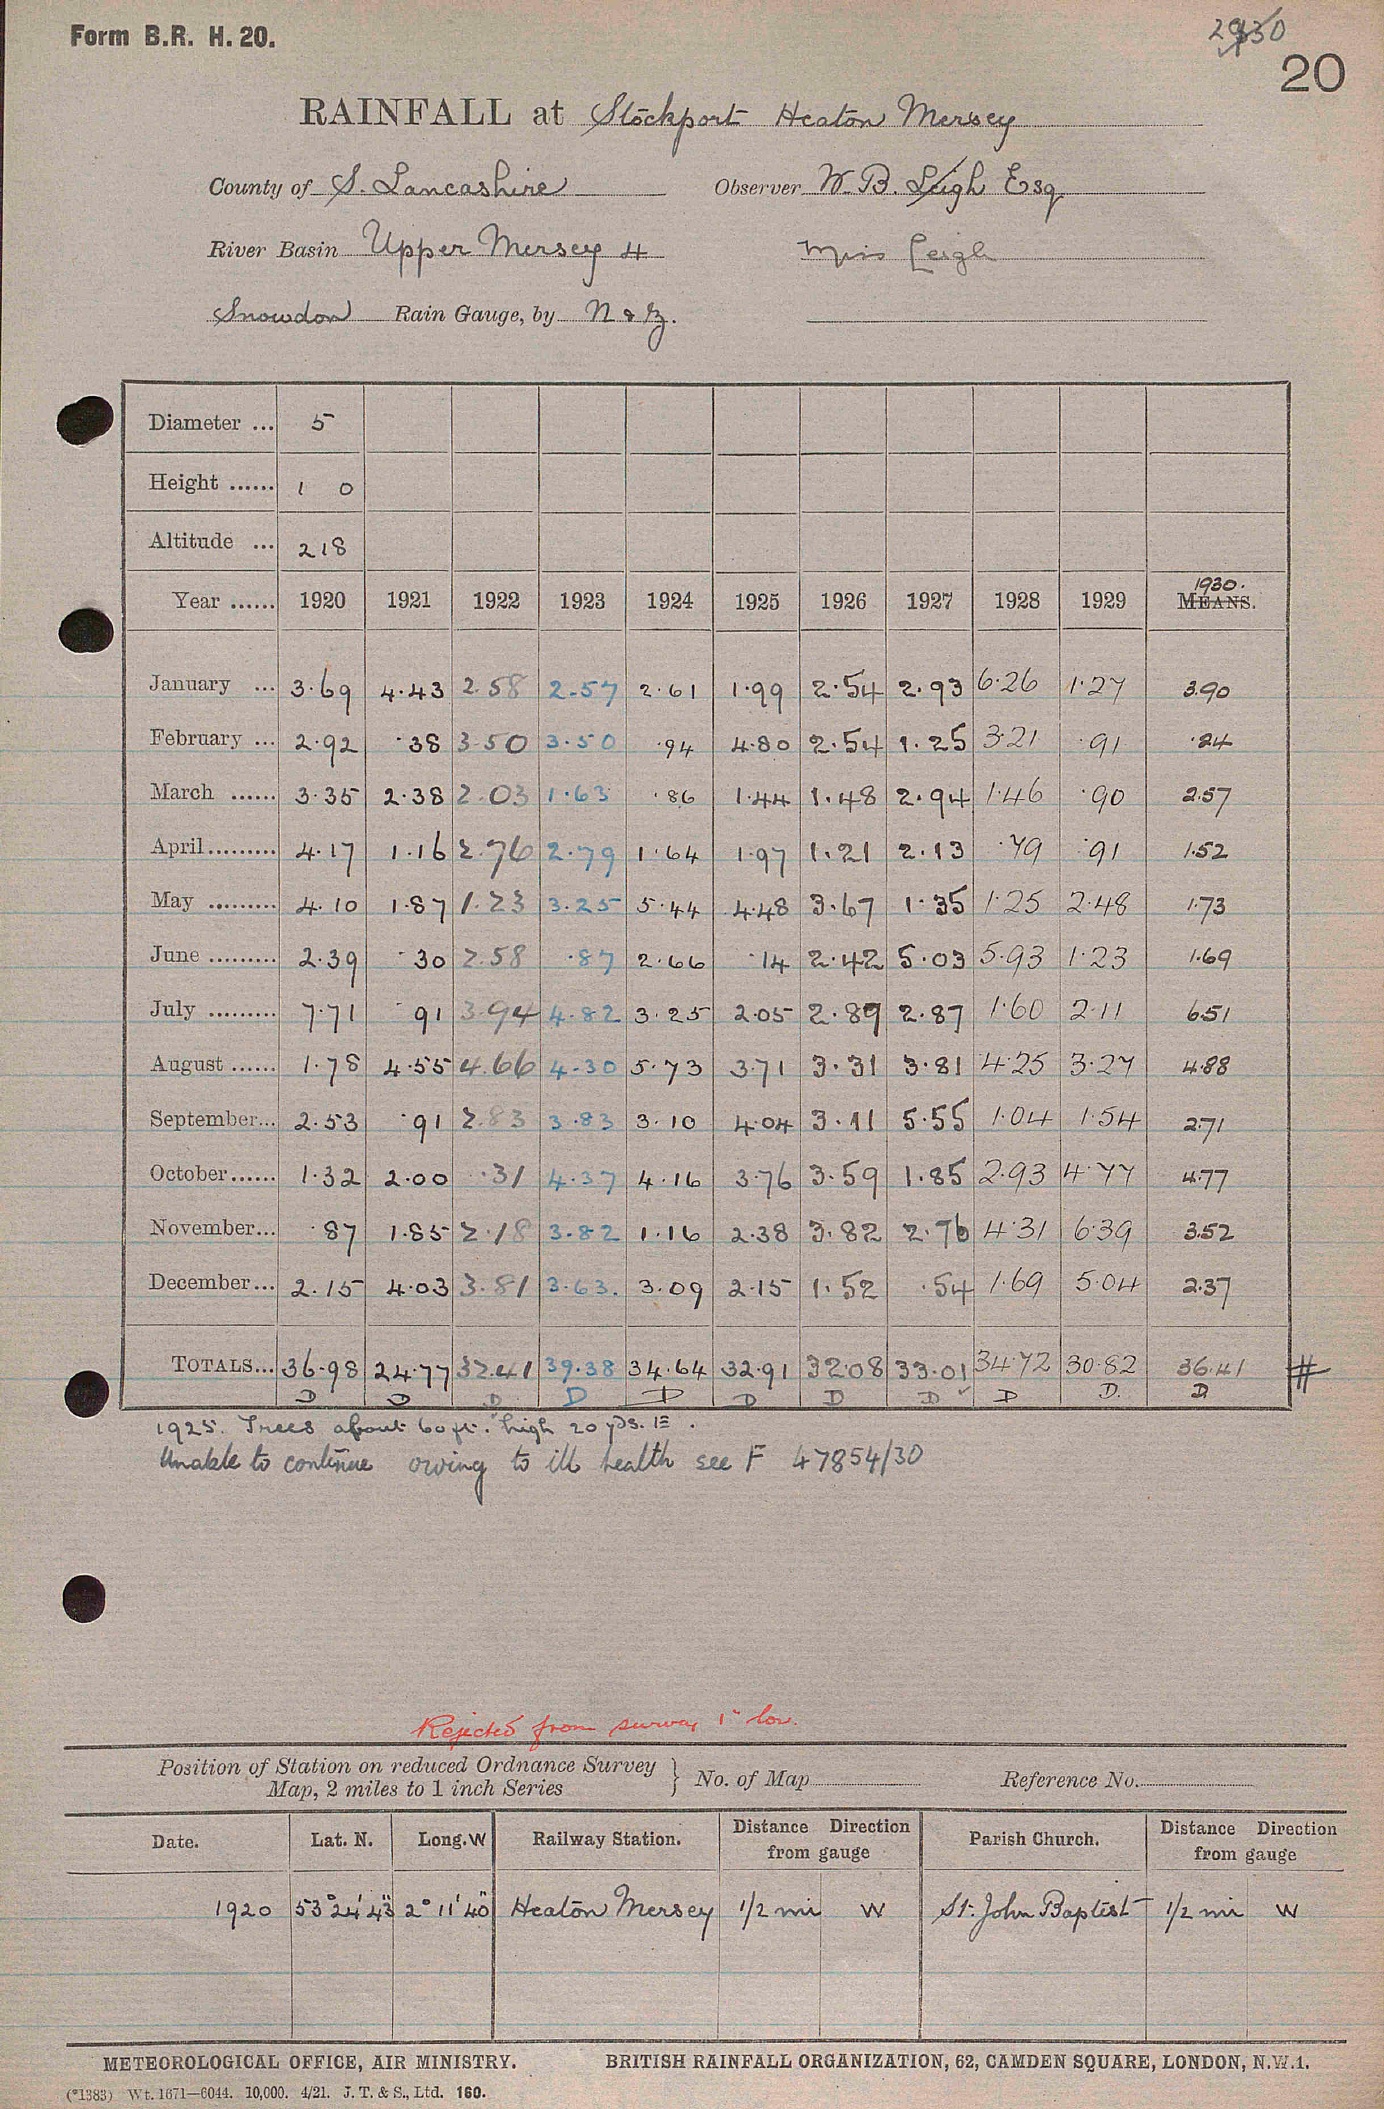 Form B.R. H. 20.
2930
20
RAINFALL at Stockport Heaton Mersey
County of S. Lancashire Observer W. B. Leigh Esq
River Basin Upper Mersey 4 Miss Leigh
Snowdon Rain Gauge, by N & Z.
Diameter ... 5
Height ...... 1 0
Altitude ... 218
Year ...... 1920 1921 1922 1923 1924 1925 1926 1927 1928 1929 1930. MEANS.
January ... 3.69 4.43 2.58 2.57 2.61 1.99 2.54 2.93 6.26 1.27 3.90
February ... 2.92 .38 3.50 3.50 .94 4.80 2.54 1.25 3.21 .91 .24
March ...... 3.35 2.38 2.03 1.63 .86 1.44 1.48 2.94 1.46 .90 2.57
April......... 4.17 1.16 2.76 2.79 1.64 1.97 1.21 2.13 .79 .91 1.52
May ......... 4.10 1.87 1.23 3.25 5.44 4.48 3.67 1.35 1.25 2.48 1.73
June ......... 2.39 .30 2.58 .87 2.66 .14 2.42 5.03 5.93 1.23 1.69
July ......... 7.71 .91 3.94 4.82 3.25 2.05 2.89 2.87 1.60 2.11 6.51
August ...... 1.78 4.55 4.66 4.30 5.73 3.71 3.31 3.81 4.25 3.27 4.88
September... 2.53 .91 2.83 3.83 3.10 4.04 3.11 5.55 1.04 1.54 2.71
October...... 1.32 2.00 .31 4.37 4.16 3.76 3.59 1.85 2.93 4.77 4.77
November... .87 1.85 2.18 3.82 1.16 2.38 3.82 2.76 4.31 6.39 3.52
December... 2.15 4.03 3.81 3.63. 3.09 2.15 1.52 .54 1.69 5.04 2.37
TOTALS... 36.98 24.77 32.41 39.38 34.64 32.91 32.08 33.01 34.72 30.82 36.41 #
D D D D D D D D D D. D
1925. Trees about 60 ft. high 20 yds. E.
Unable to continue owing to ill health see F 47854/30
Rejected from survey 1" low.
Position of Station on reduced Ordnance Survey Map, 2 miles to 1 inch Series } No. of Map Reference No.
Date. Lat. N. Long. W Railway Station. Distance Direction from gauge Parish Church. Distance Direction from gauge
1920 53° 24' 43" 2° 11' 40" Heaton Mersey 1/2 mi W St. John Baptist 1/2 mi W
METEOROLOGICAL OFFICE, AIR MINISTRY. BRITISH RAINFALL ORGANIZATION, 62, CAMDEN SQUARE, LONDON, N.W.1.
(*1383) Wt. 1671—6044. 10,000. 4/21. J. T. & S., Ltd. 160.